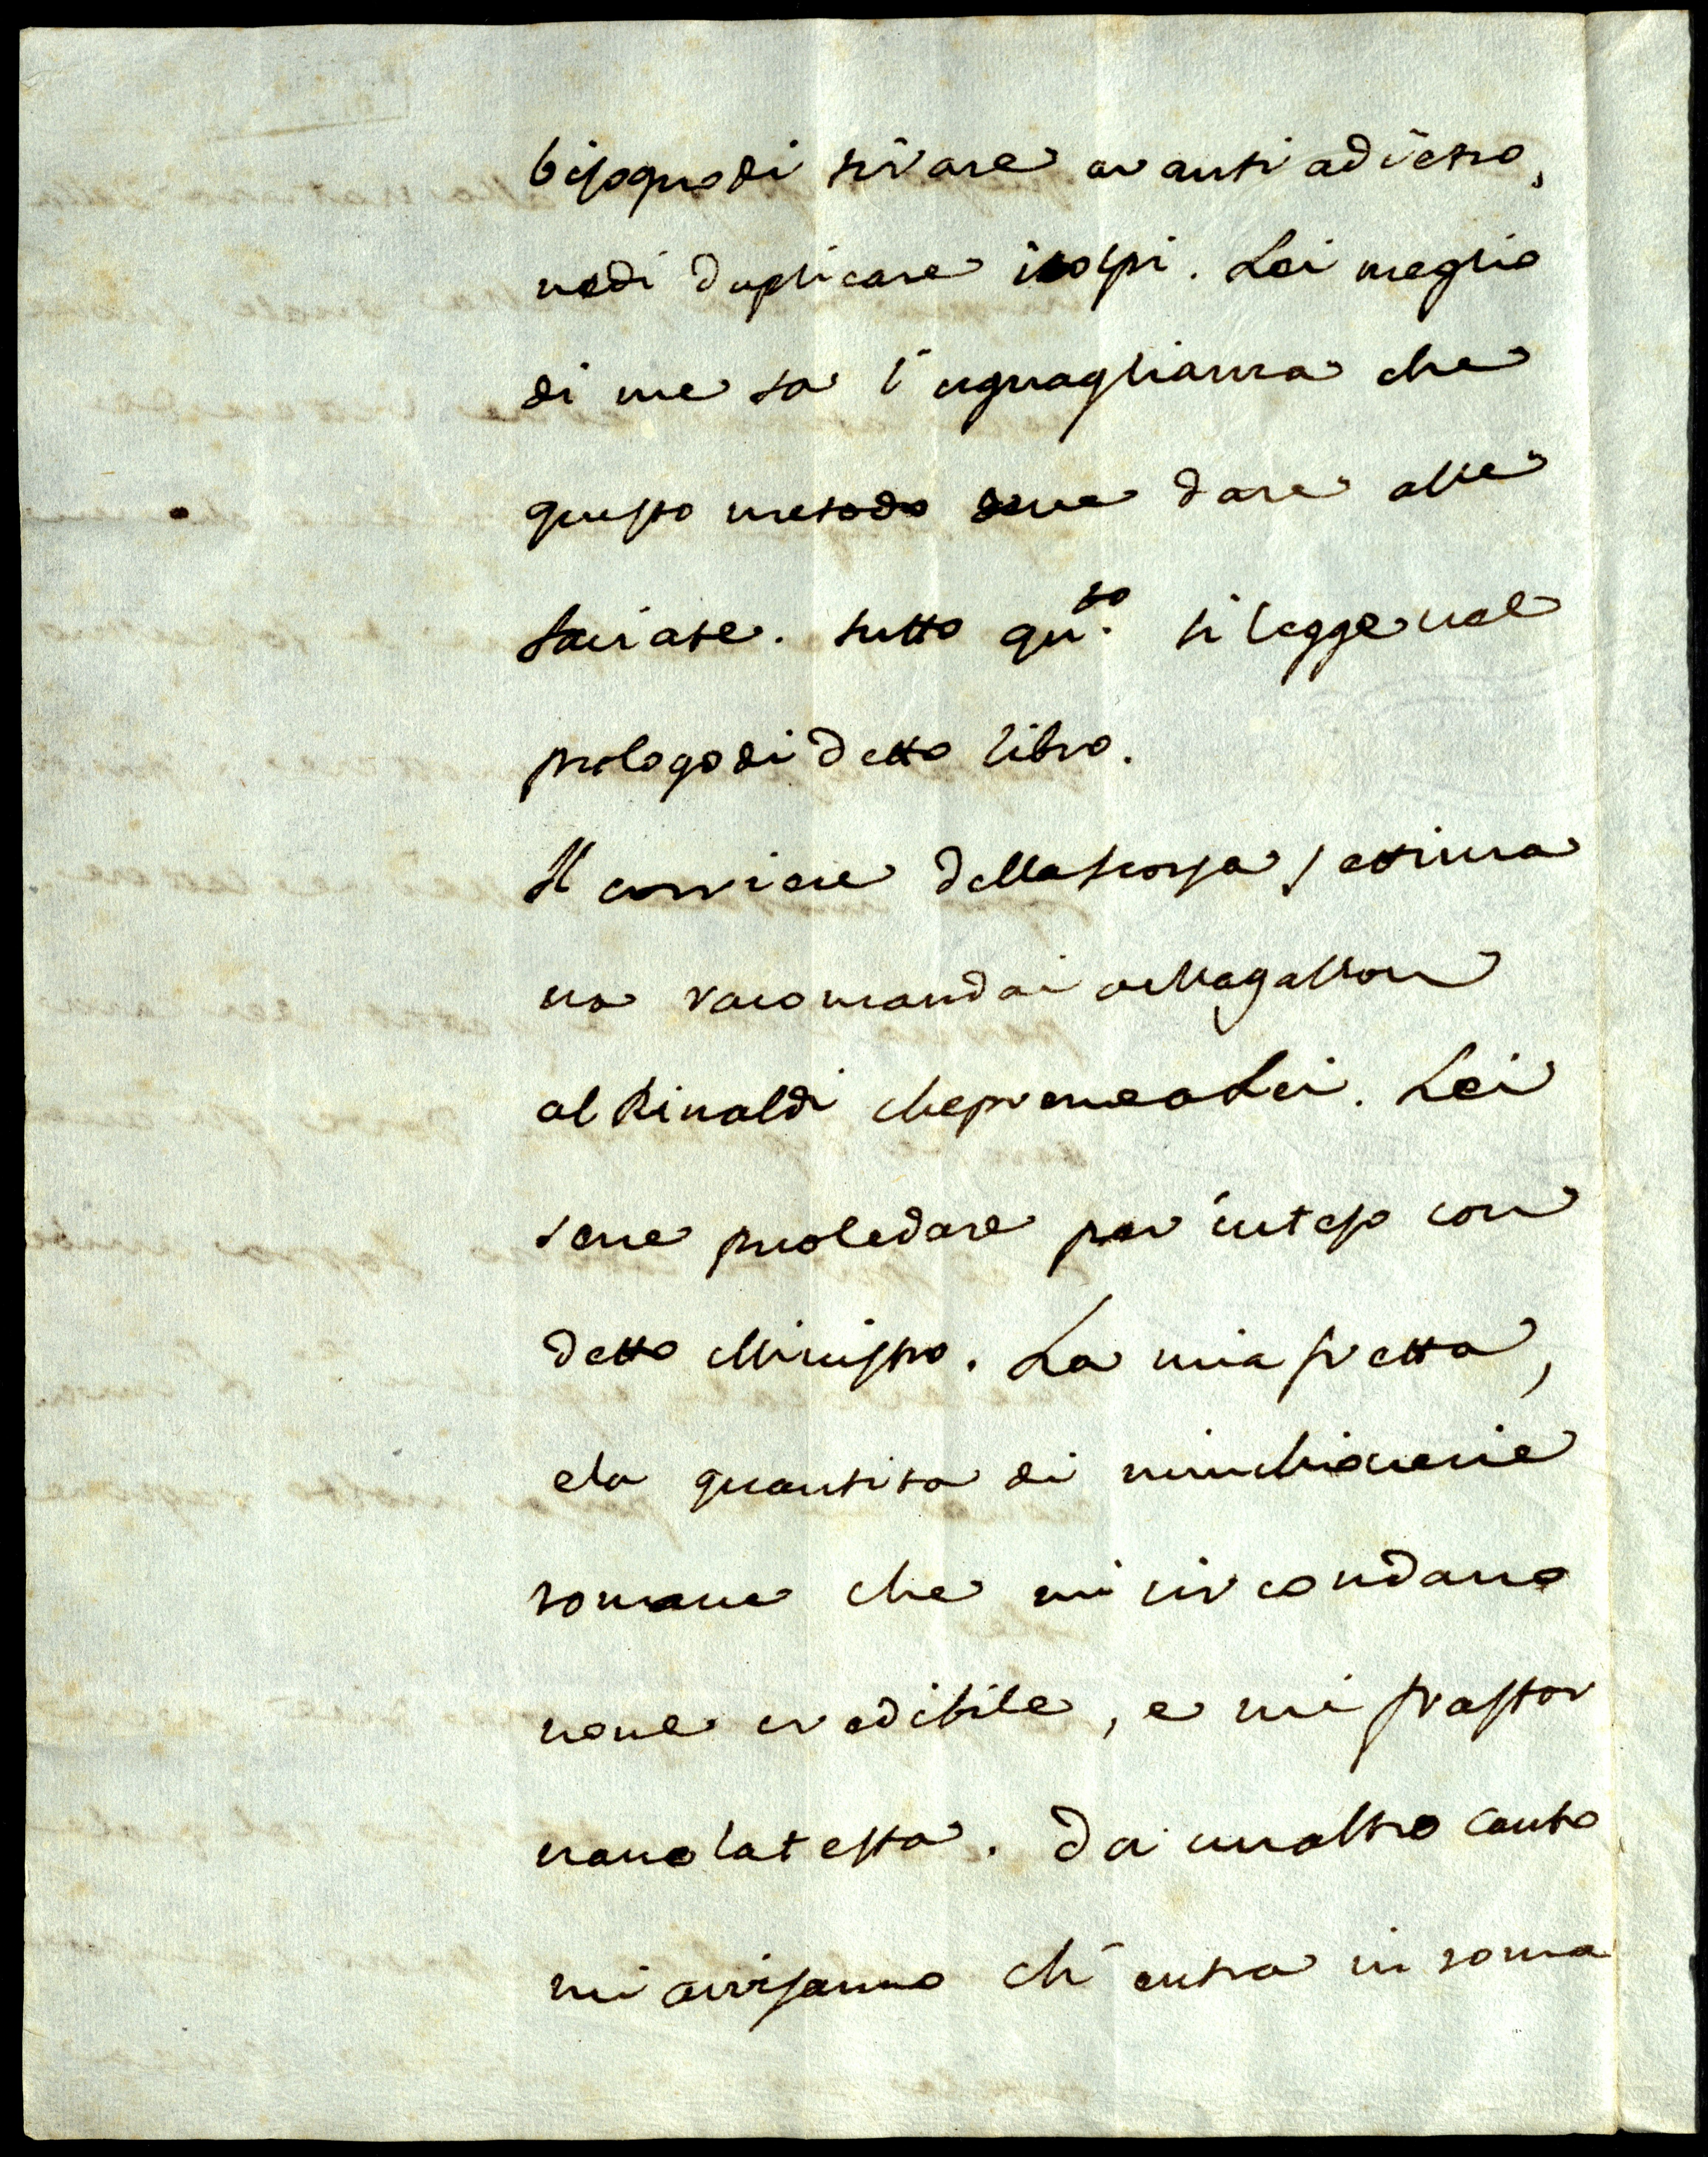 bisogno di tirare avanti adietro,
nedi duplicare icolpi. Lei meglio
di me sa l'uguaglianza che
questo metodo deve dare alle
sciate. tutto qu.to si legge nel
prologo di detto libro.
Il corriere dellascorsa settima
na racomandai
al Rinaldi chepremealei. Lei
sene puoledare per inteso con
detto Ministro. La mia fretta,
ela quantita di minchionerie
romane che mi circondano
none credibile, e mi frastor
nano latesta. Da unaltro canto
mi avvisanno ch'entra in roma